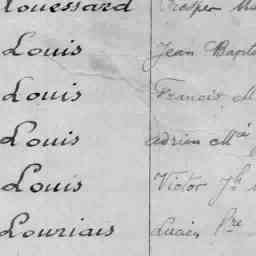 Louessard Prosper
Louis Jean Bapti
Louis Francois M
Louis Adrien Mie
Louis Victor Jh
Louriais Lucien Pre